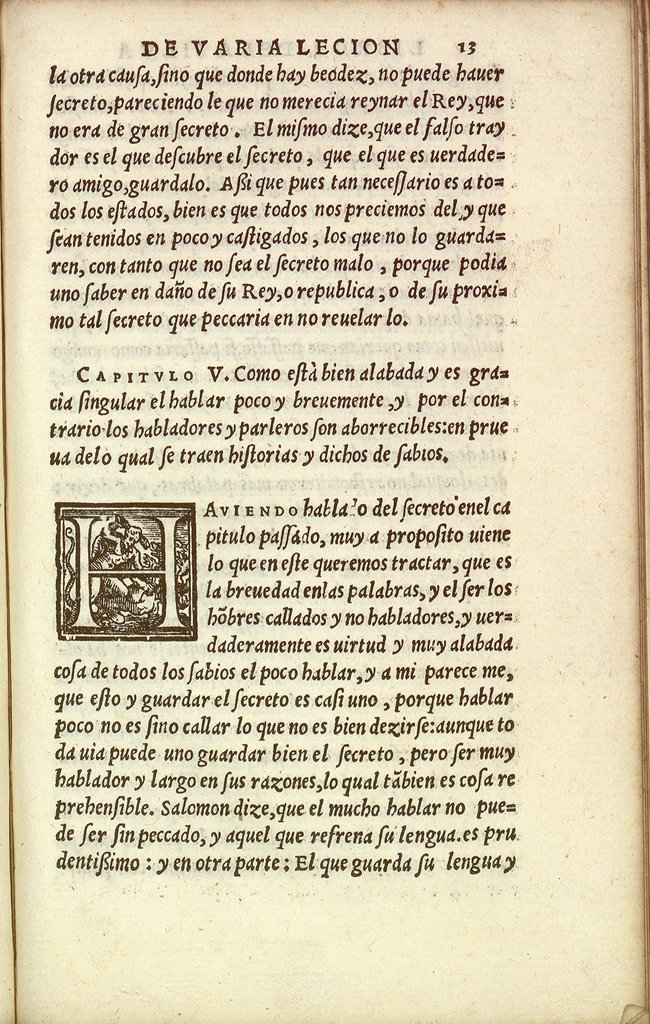 DE VARIA LECION 13
la otra cauſa, ſino que donde hay beodez, no puede hauer
ſecreto, pareciendo le que no merecia reynar el Rey, que
no era de gran ſecreto. El miſmo dize, que el falſo tray
dor es el que deſcubre el ſecreto, que el que es uerdade=
ro amigo, guardalo. Aßi que pues tan neceſſario es a to=
dos los eſtados, bien es que todos nos preciemos del, y que
ſean tenidos en poco y caſtigados, los que no lo guarda=
ren, con tanto que no ſea el ſecreto malo, porque podia
uno ſaber en daño de ſu Rey, o republica, o de ſu proxi=
mo tal ſecreto que peccaria en no reuelar lo.
CAPITVLO V. Como eſtà bien alabada y es gra=
cia ſingular el hablar poco y breuemente, y por el con=
trario los habladores y parleros ſon aborrecibles: en prue
ua delo qual ſe traen hiſtorias y dichos de ſabios.
HAVIENDO hablado del ſecreto enel ca
pitulo paſſado, muy a propoſito uiene
lo que en eſte queremos tractar, que es
la breuedad enlas palabras, y el ſer los
hõbres callados y no habladores, y uer=
daderamente es uirtud y muy alabada
coſa de todos los ſabios el poco hablar, y a mi parece me,
que eſto y guardar el ſecreto es caſi uno, porque hablar
poco no es ſino callar lo que no es bien dezirſe: aunque to
da uia puede uno guardar bien el ſecreto, pero ſer muy
hablador y largo en ſus razones, lo qual tãbien es coſa re
prehenſible. Salomon dize, que el mucho hablar no pue=
de ſer ſin peccado, y aquel que refrena ſu lengua. es pru
dentißimo: y en otra parte: El que guarda ſu lengua y